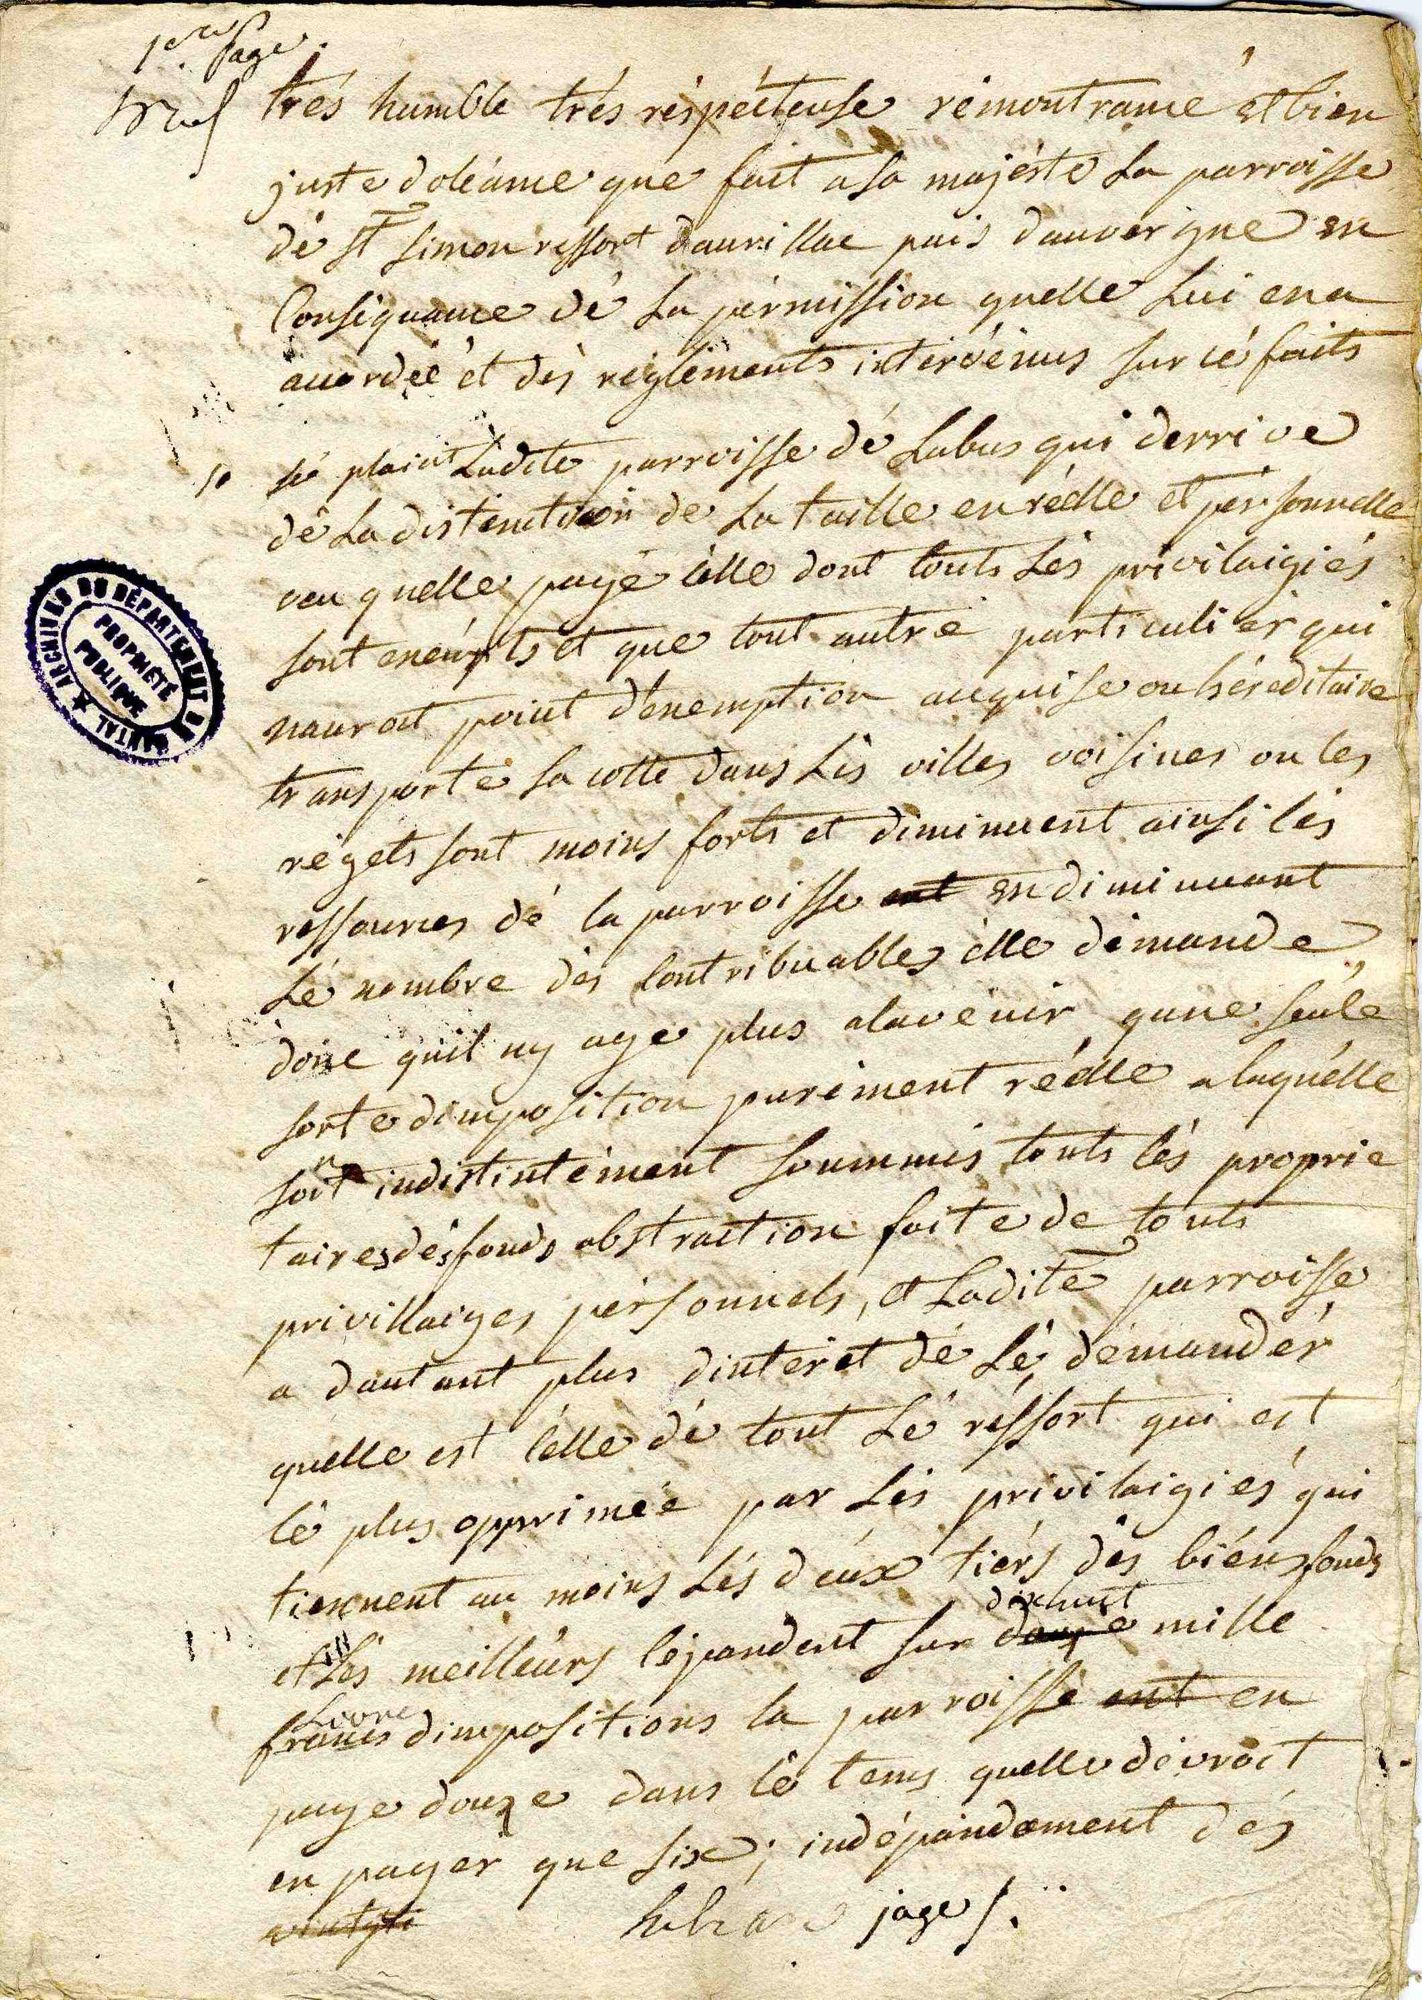 1ere page
trés humble trés réspécteuse rémontrance et bien
juste doléance que fait a sa majésté La parroisse
dé St Simon ressort daurillac païs dauvergne en
Conséquance dé La pérmission quelle Lui en a
accordéé et dés réglements intervénus sur cé faits
1o sé plaint Ladite parroisse dé Labus qui derrive
dé La distinction de La taille en réélle et pérsonnelle
veu quelle payé célle dont touts Lés privilaigiés
sont exémpts et que tout autré particuliér qui
nauroit point déxemption acquise ou héréditaire
transporté sa cotte dans Lés villes voisines ou les
régets sont moins forts et diminuent ainsi lés
ressources dé la parroisse ent en diminuant
Lé nombre dés Contribuables élle démande
donc quil ny aye plus alavénir qune séule
sorte dimposition puriment réélle alaquélle
soint indistintément soummis touts lés proprie
taires dés fonds abstraction faite de touts
privillaiges pérsonnels, et Ladite parroisse
a dautant plus dinterét dé Lé démandér
quelle est célle dé tout Lé réssort qui est
lé plus opprimée par Lés privilaigiés qui
tiennent au moins Lés déux tiérs dés biéns fonds
et Lés meilléurs cépandent sur douze dixhuit mille
francs Livre dimpositions la parroissé ent en
paye douze dans lé tems quelle dévroit
en payér que six ; indépandament dés
vintyti
jage
ARCHIVES DU DÉPARTEMENT DU CANTAL
PROPRIÉTÉ
PUBLIQUE